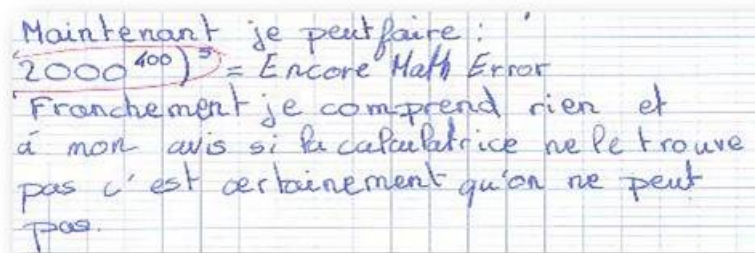 Maintenant je peut faire :
(2000⁴⁰⁰)⁵ = Encore Math Error
Franchement je comprend rien et
à mon avis si la calculatrice ne le trouve
pas c'est certainement qu'on ne peut
pas.